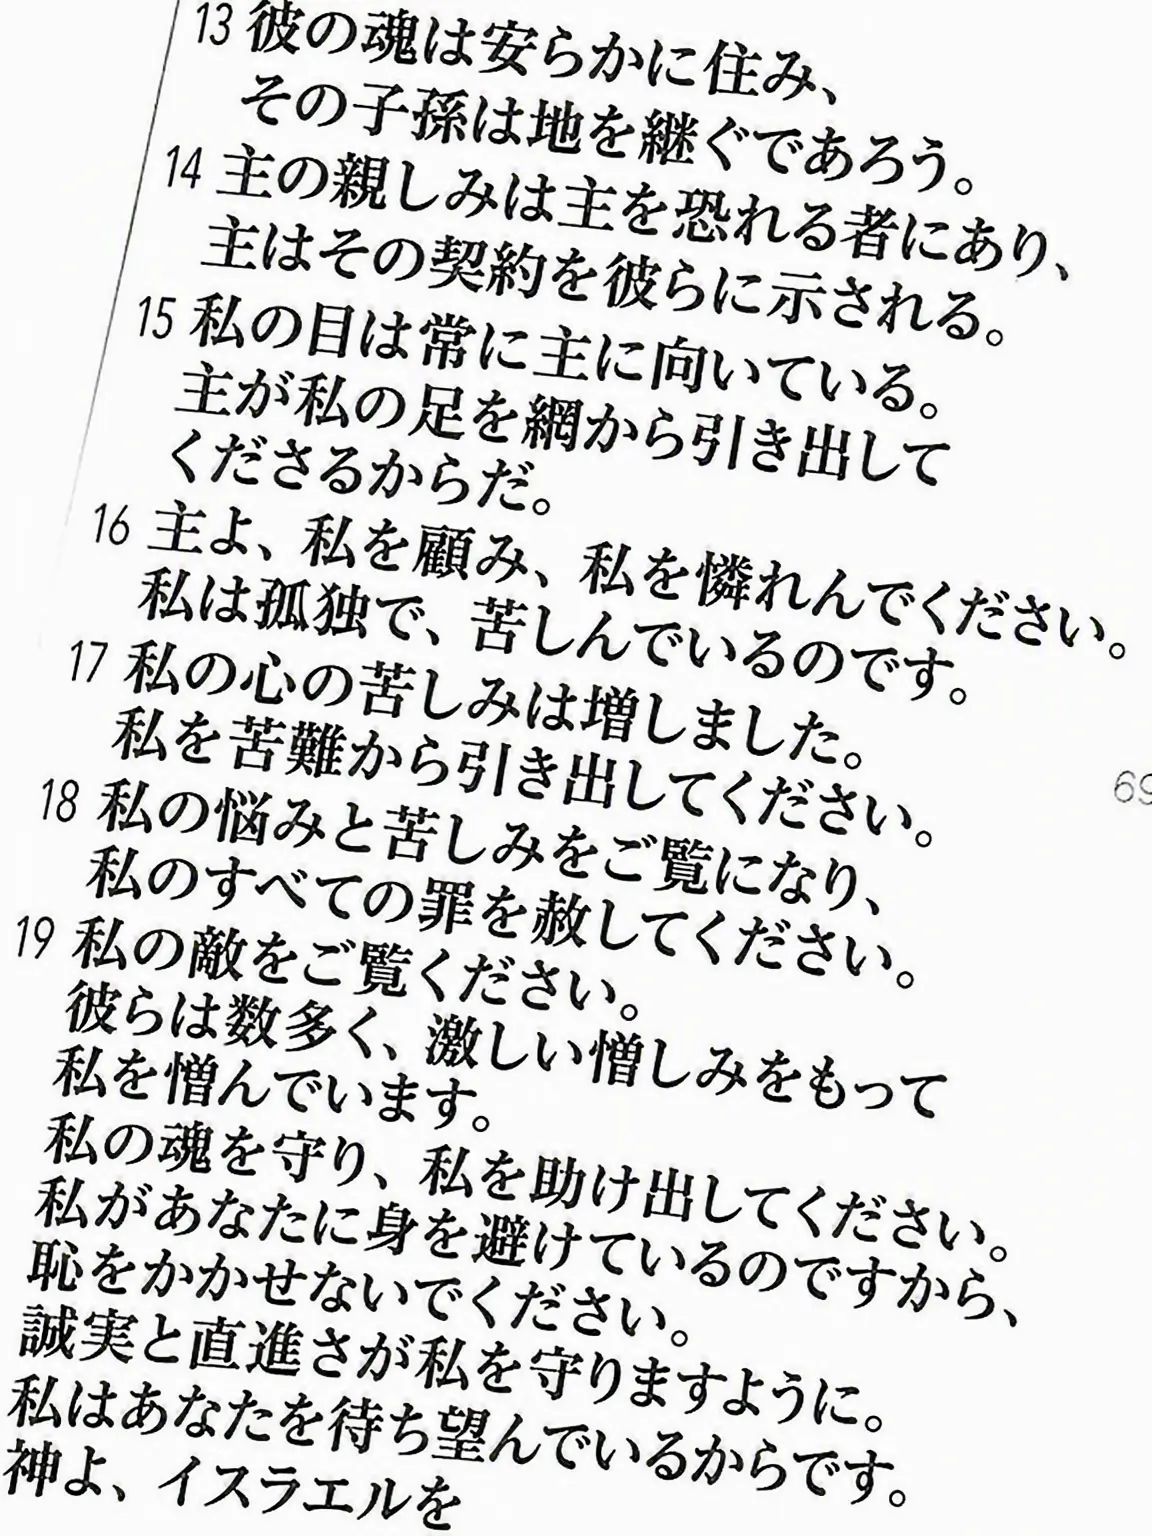 13 彼の魂は安らかに住み、
その子孫は地を継ぐであろう。
14 主の親しみは主を恐れる者にあり、
主はその契約を彼らに示される。
15 私の目は常に主に向いている。
主が私の足を網から引き出して
くださるからだ。
16 主よ、私を顧み、私を憐れんでください。
私は孤独で、苦しんでいるのです。
17 私の心の苦しみは増しました。
私を苦難から引き出してください。
69
18 私の悩みと苦しみをご覧になり、
私のすべての罪を赦してください。
19 私の敵をご覧ください。
彼らは数多く、激しい憎しみをもって
私を憎んでいます。
私の魂を守り、私を助け出してください。
私があなたに身を避けているのですから、
恥をかかせないでください。
誠実と直進さが私を守りますように。
私はあなたを待ち望んでいるからです。
神よ、イスラエルを